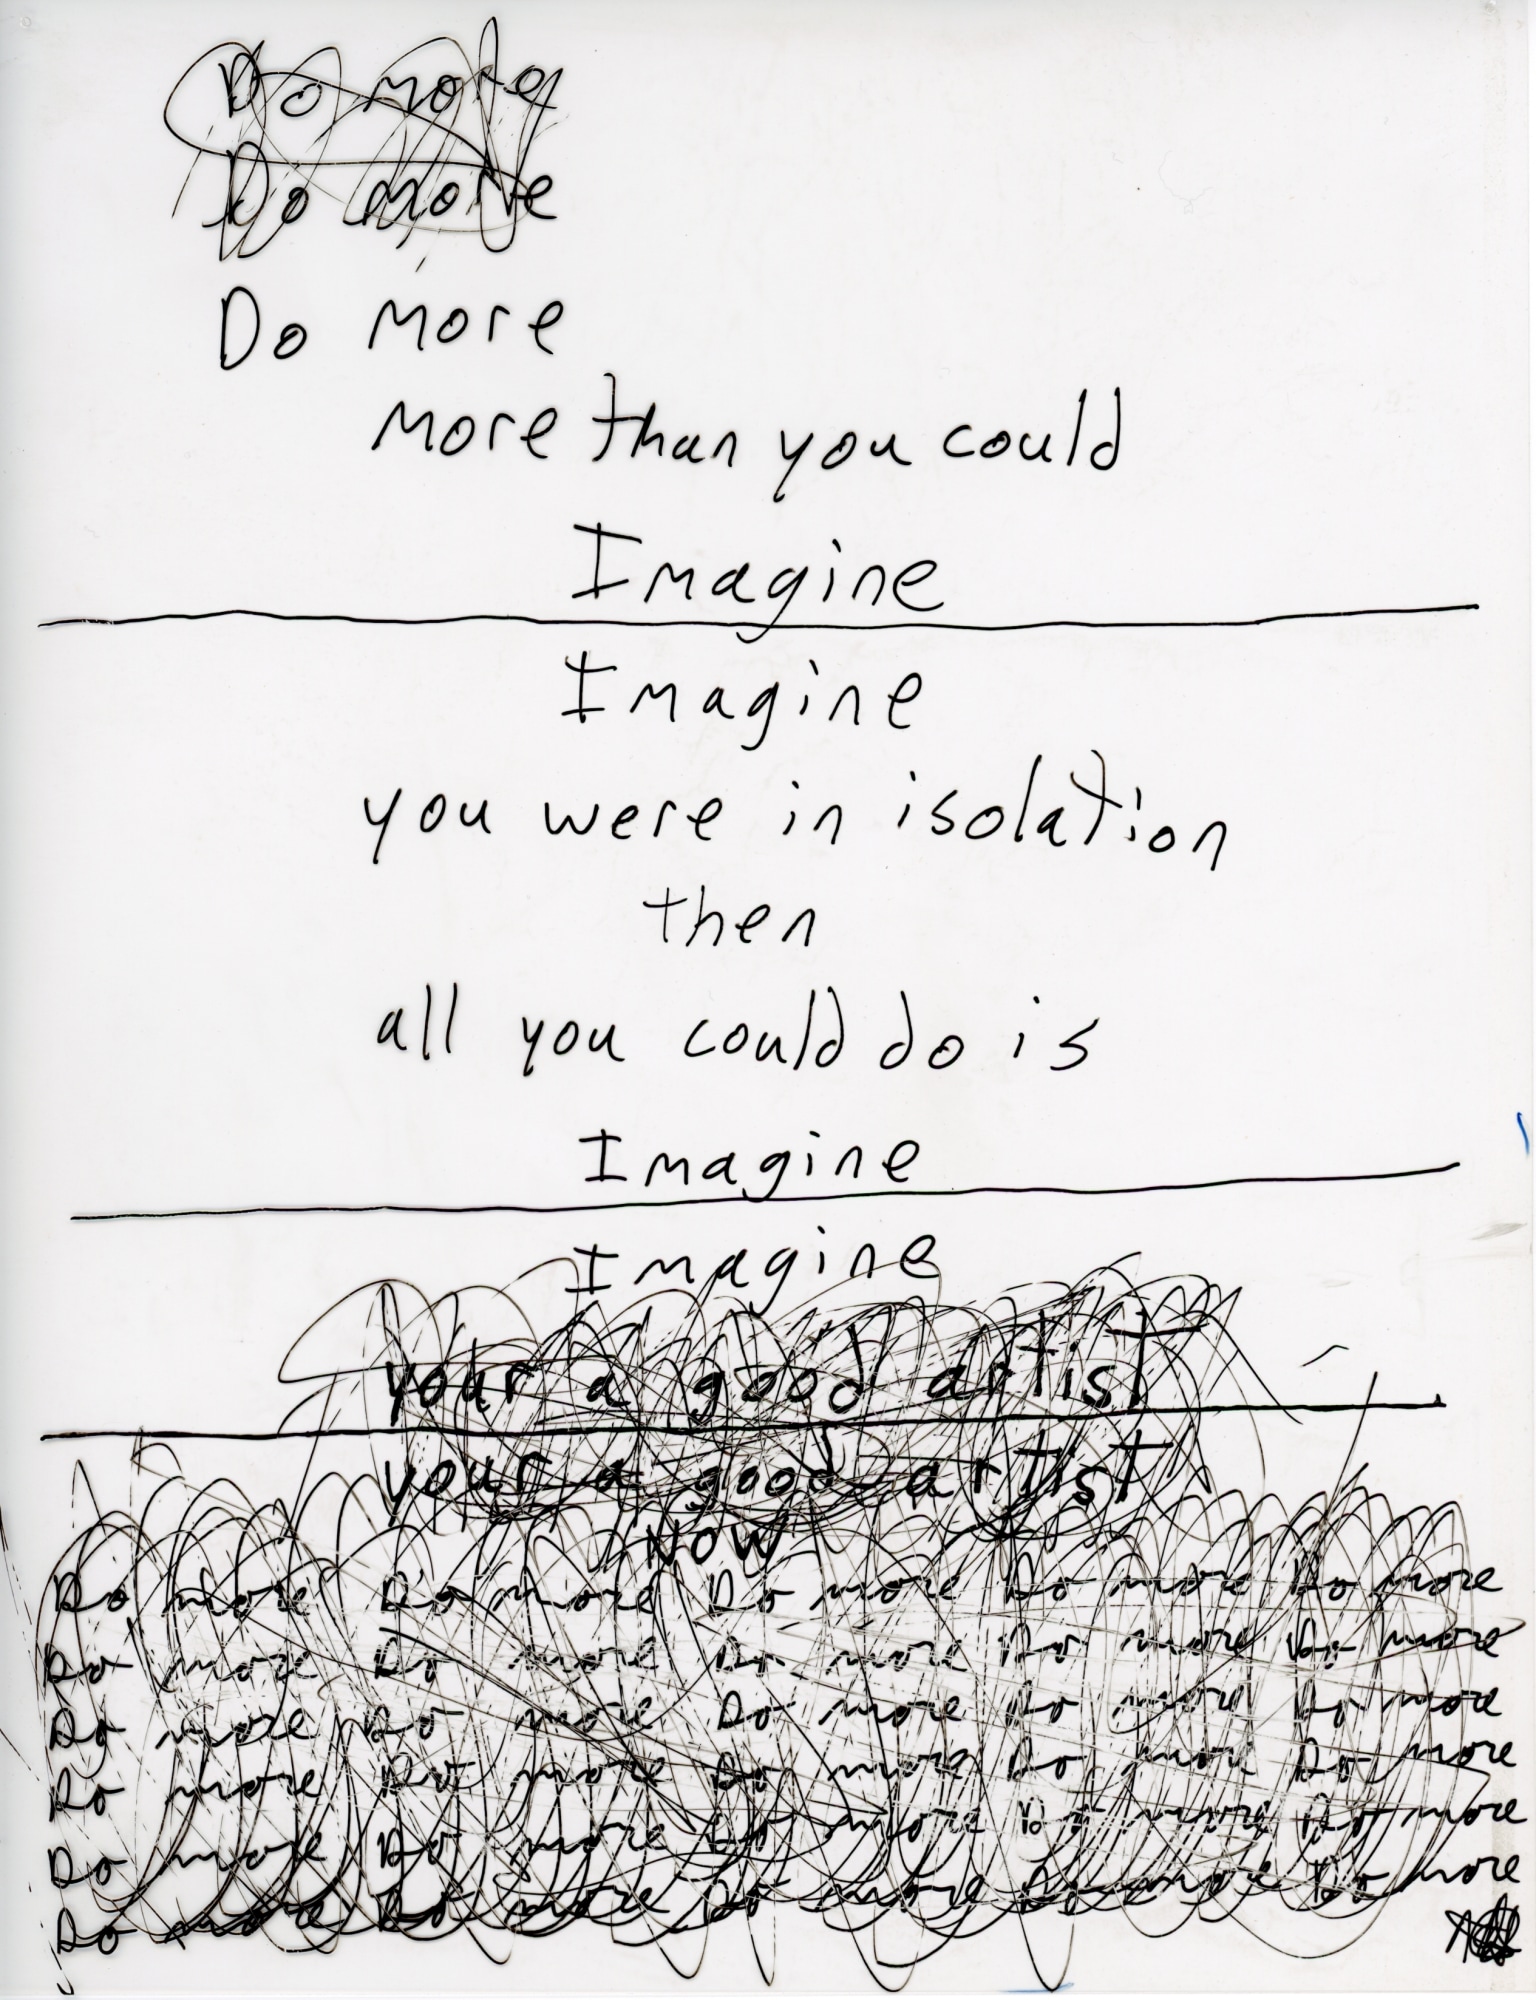 Do more
Do more
Do more
more than you could
Imagine
Imagine
you were in isolation
then
all you could do is
Imagine
Imagine
your a good artist
your a good artist
NOW
Do more Do more Do more Do more Do more
Do more Do more Do more Do more Do more
Do more Do more Do more Do more Do more
Do more Do more Do more Do more Do more
Do more Do more Do more Do more Do more
Do more Do more Do more Do more Do more